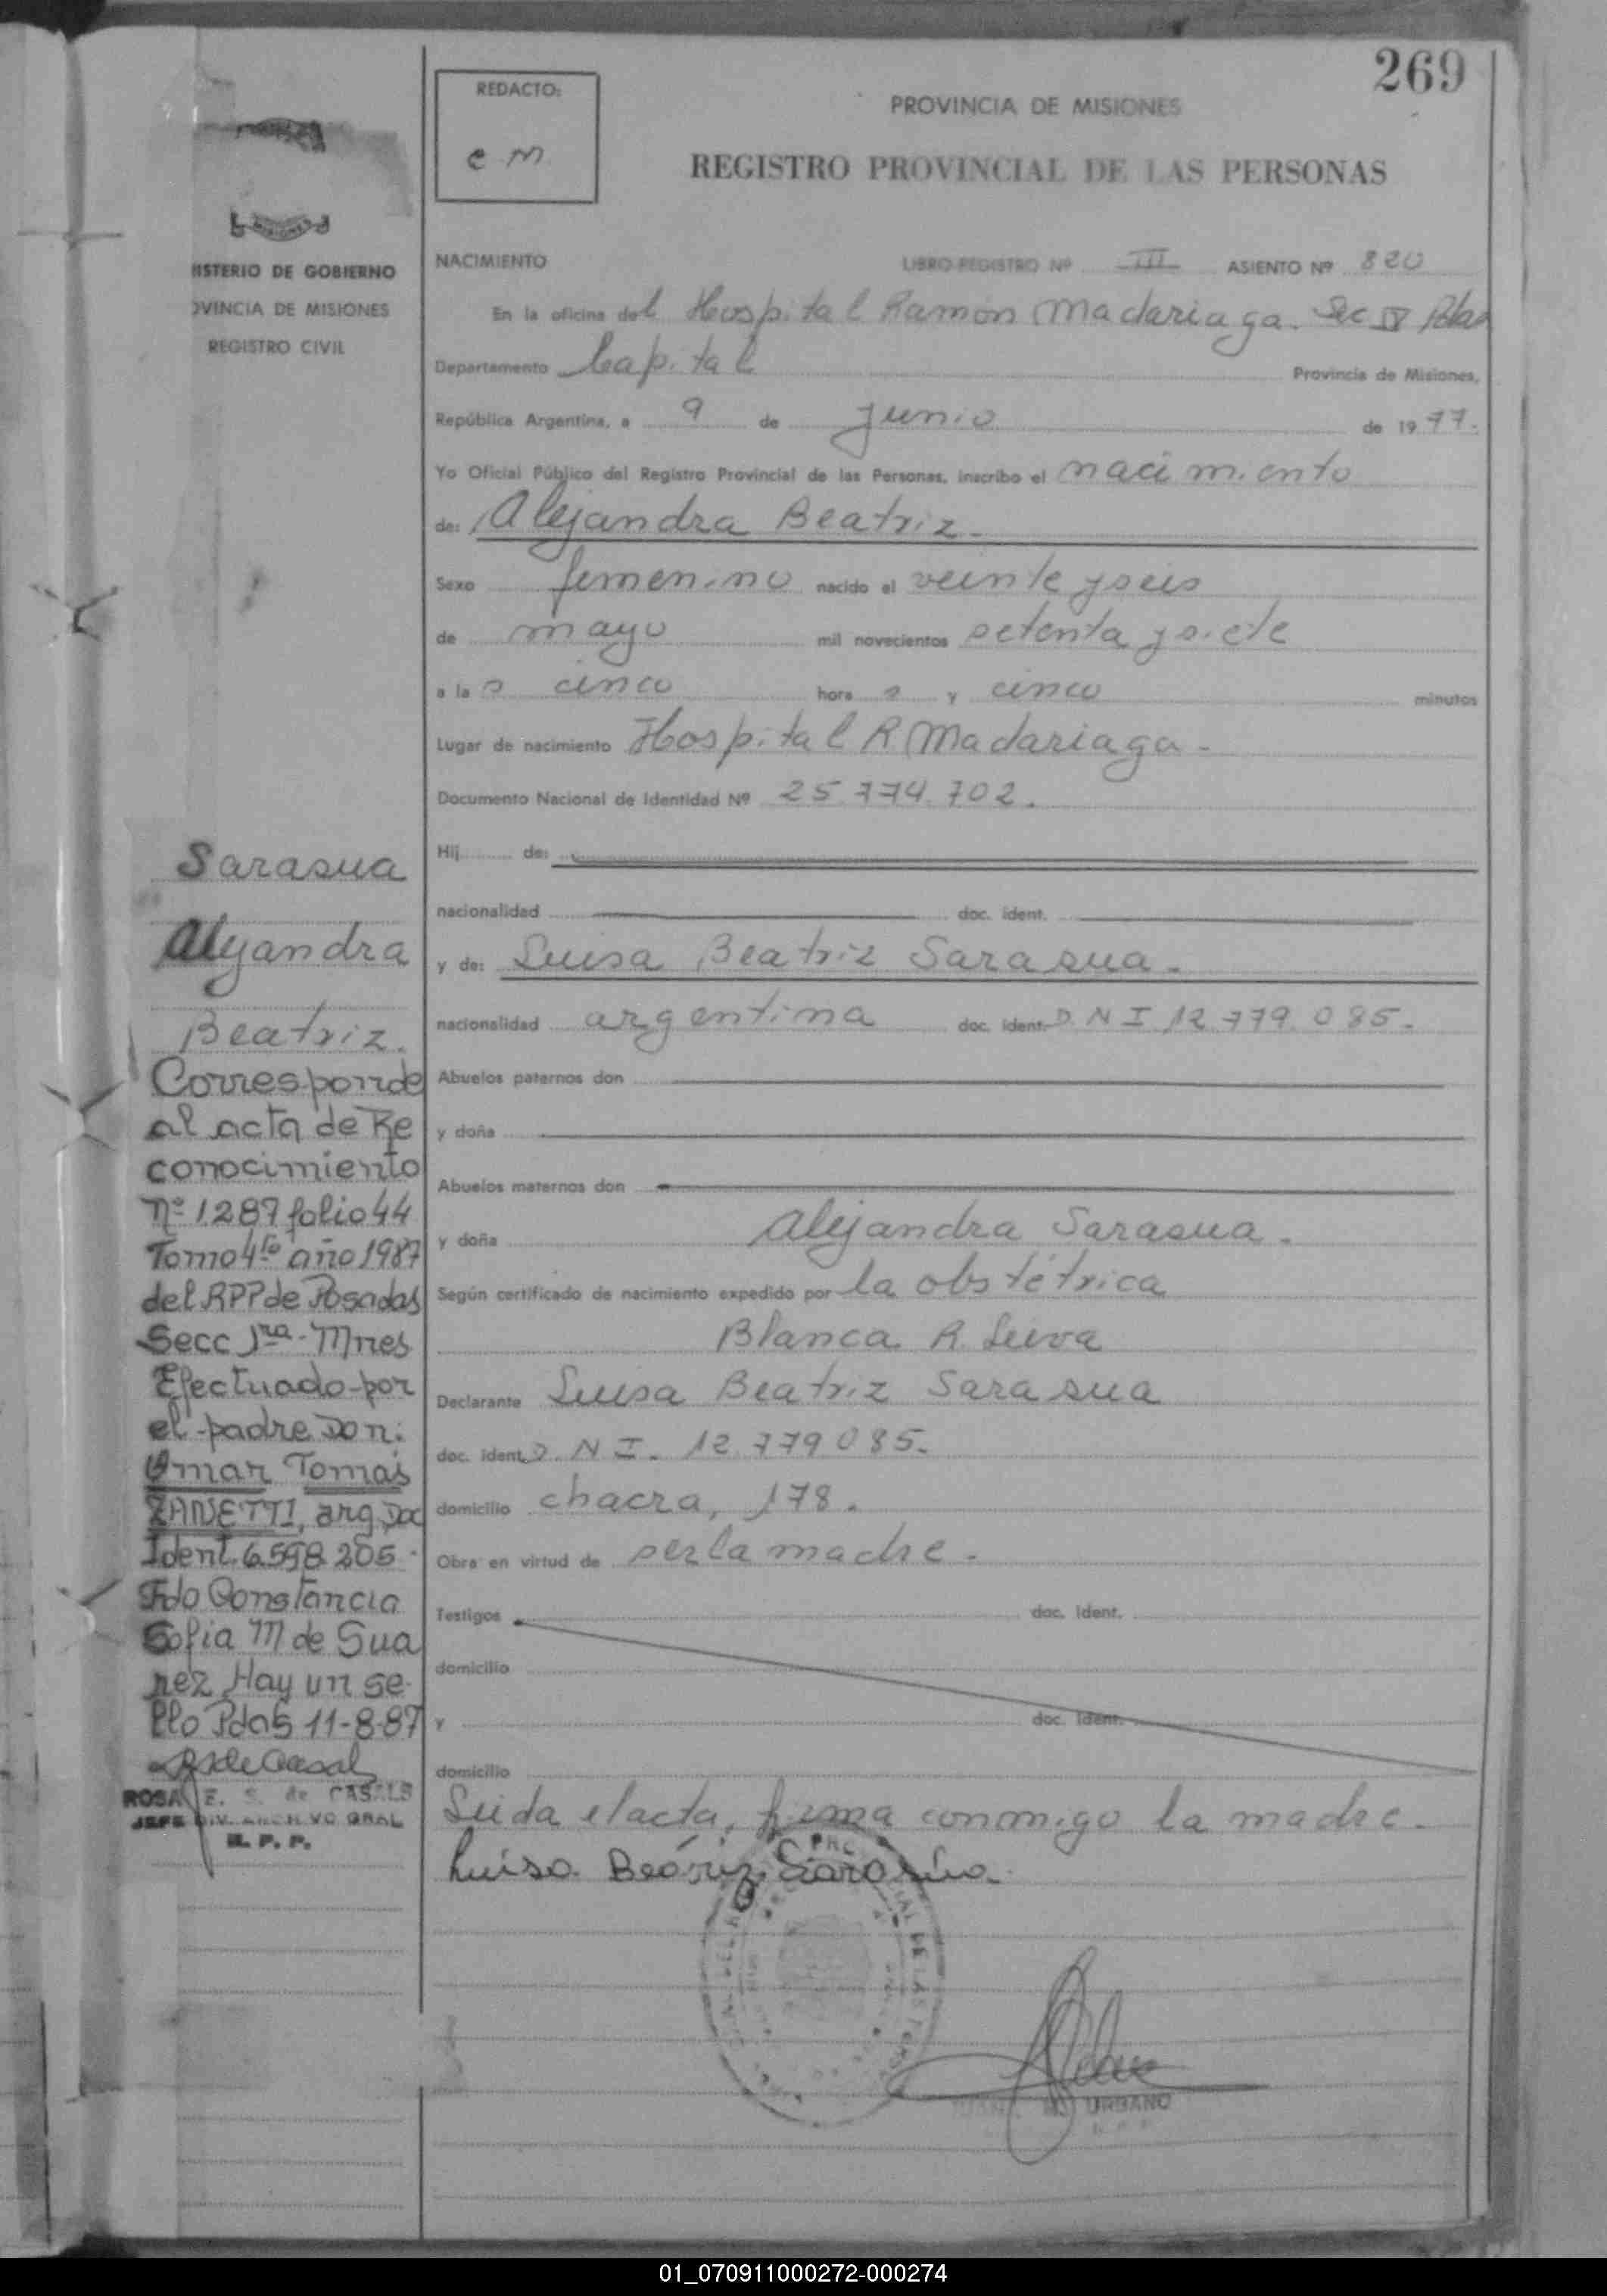 269
REDACTO:
C M
PROVINCIA DE MISIONES
REGISTRO PROVINCIAL DE LAS PERSONAS
MISIONES
ISTERIO DE GOBIERNO
OVINCIA DE MISIONES
REGISTRO CIVIL
NACIMIENTO LIBRO-REGISTRO Nº III ASIENTO Nº 820
En la oficina del Hospital Ramon Madariaga. Sec IV Pdas
Departamento Capital Provincia de Misiones,
República Argentina, a 9 de junio de 1977.
Yo Oficial Público del Registro Provincial de las Personas, inscribo el nacimiento
de: Alejandra Beatriz.
Sexo femenino nacido el veinte y seis
de mayo mil novecientos setenta y siete
a las cinco horas y cinco minutos
Lugar de nacimiento Hospital R Madariaga -
Documento Nacional de Identidad Nº 25.774.702.
Hij de:
nacionalidad doc. ident.
y de: Luisa Beatriz Sarasua.
nacionalidad argentina doc. ident. D N I 12 779 085.
Abuelos paternos don
y doña
Abuelos maternos don
y doña Alejandra Sarasua.
Según certificado de nacimiento expedido por la obstétrica
Blanca R. Leiva
Declarante Luisa Beatriz Sarasua
doc. ident. D. N I. 12 779 085.
domicilio chacra, 178.
Obra en virtud de ser la madre.
Testigos doc. ident.
domicilio
y doc. ident.
domicilio
Leida el acta, firma conmigo la madre.
Luisa Beatriz Sarasua.
URBANO
Sarasua
Alejandra
Beatriz.
Corresponde
al acta de Re
conocimiento
Nº 1287 folio 44
Tomo 4to año 1987
del RPP de Posadas
Secc 1ra - Mnes
Efectuado por
el padre Don:
Omar Tomas
ZANETTI, arg Doc
Ident. 6.598.205.
Fdo Constancia
Sofia M de Sua
rez Hay un se
llo Pdas 11-8-87
ROSA E. S. de CASALS
JEFE DIV. ARCHIVO GRAL
R. P. P.
01_070911000272-000274